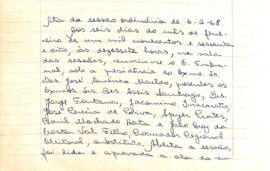 Ata da sessão ordinária de 6-2-68.
Aos seis dias do mês de feve-
reiro de um mil novecentos e sessenta
e oito, às dezessete horas, na sala
das sessões, reuniu-se o E. Tribu-
nal, sob a presidência do Exmo. Sr.
Des. José Gomes, presentes os
Exmos. Srs. Des. Assis Santiago, Drs.
Jorge Fontana, Jacomino Inacarato,
José Pereira de Paiva,
Raul Machado Horta e João Braz da
Costa Val Filho, Procurador Regional
Eleitoral, substituto. Aberta a sessão,
foi lida e aprovada a ata da an-